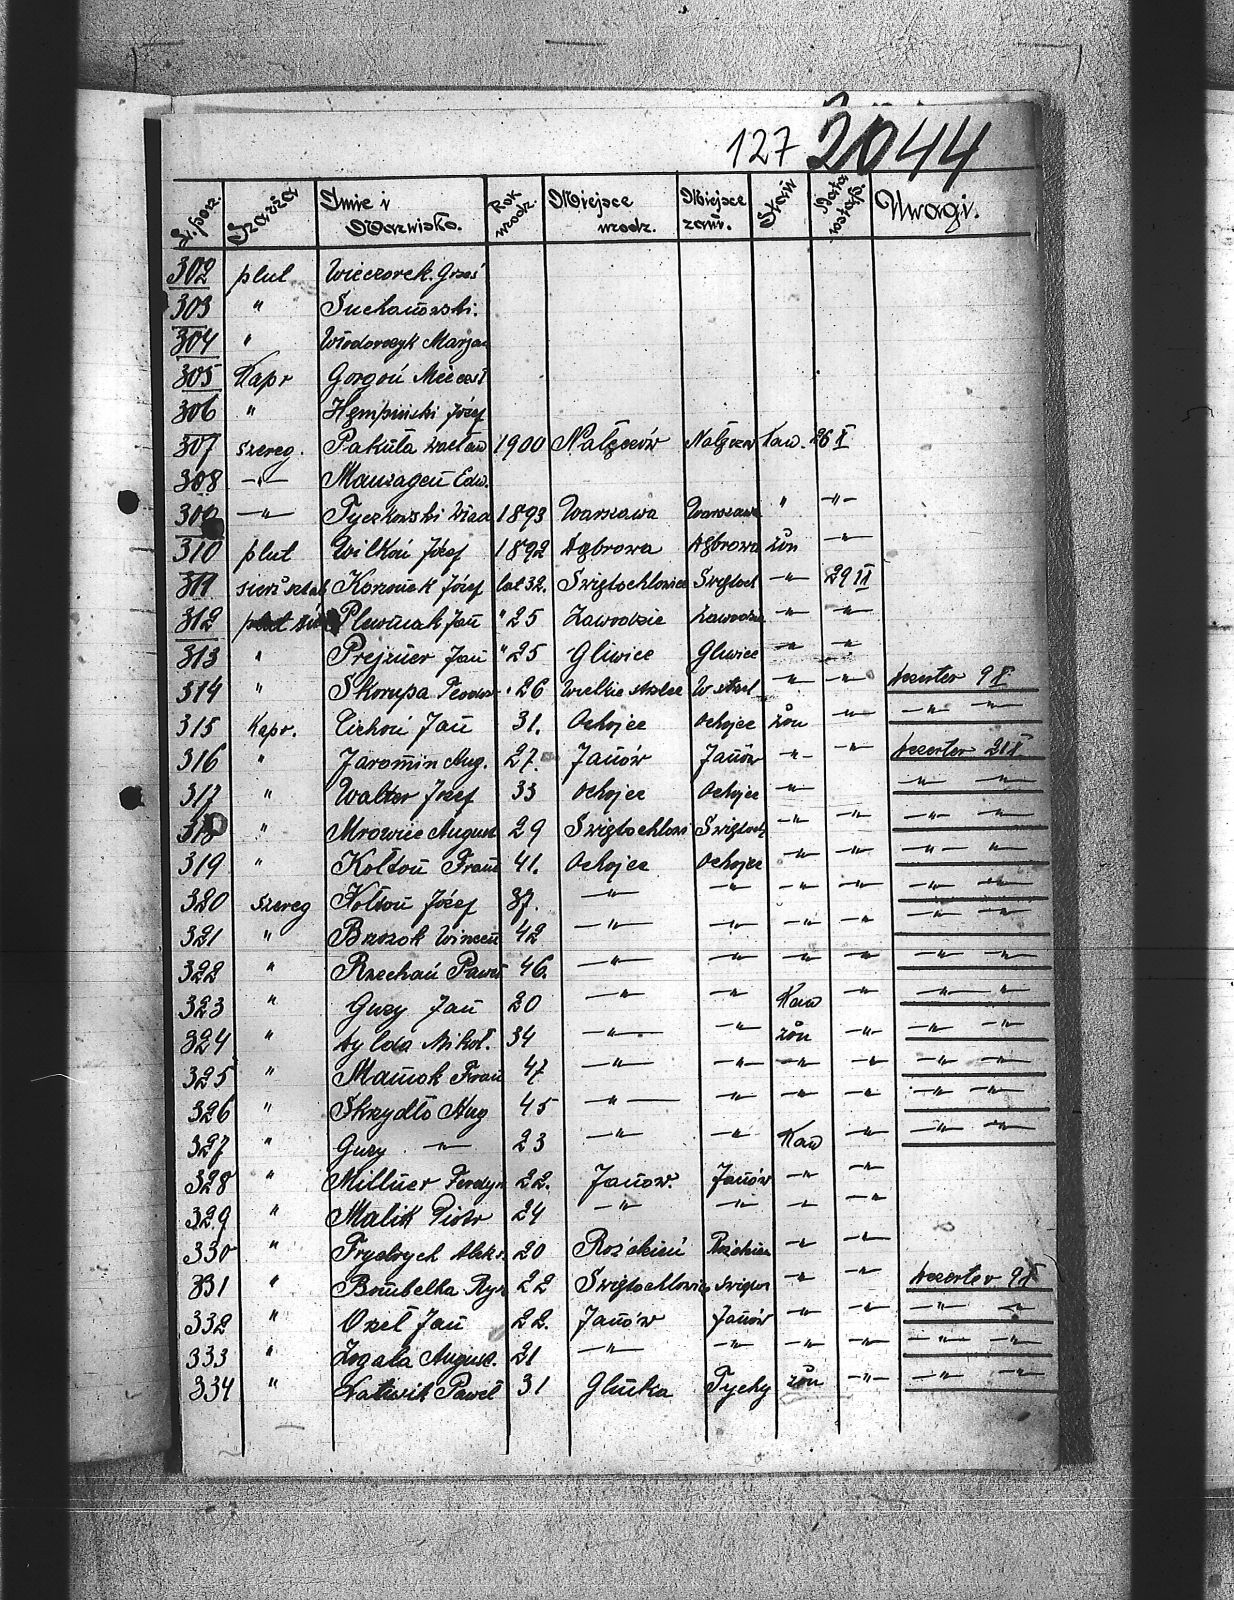 127 2044
L. porz. Szarża Imię i Nazwisko. Rok urodz. Miejsce urodz. Miejsce zam. Stan Data wstąp. Uwagi.
302 plut Wieczorek Grześ
303 " Suchanowski.
304 " Włodarczyk Marjan
305 Kapr Gorgoń Mieczsł
306 " Hempiński Józef
307 szereg. Pakuła Wacław 1900 Nałęczów Nałęczów Kaw. 26 I
308 —"— Manzagen Edw.
309 —"— Tyczkowski Wład 1893 Warszawa Warszawa " —"—
310 plut Wilkoń Józef 1892 Dąbrowa Dąbrowa żon —"—
311 sierż sztab Józef lat 32. Swiętochłowice Swiętoch —"— 29 II
312 Plewniak Jan " 25 Zawodzie Zawodzie —"— —"—
313 " Prejzner Jan " 25 Gliwice Gliwice —"— —"—
314 " Skorupa " 26 Wielkie W —"— —"— dezerter 9
315 Kapr. Cichoń Jan 31. Ochojec Ochojec żon —"— —"— —"—
316 " Jaromin Aug. 27. Janów Janów —"— —"— dezerter 21
317 " Walter Józef 33 Ochojec Ochojec —"— —"— —"—
318 " Mrowiec August 29 Swiętochłowi Swiętoch —"— —"— —"— —"—
319 " Kołton Fran 41. Ochojec Ochojec —"— —"— —"— —"—
320 szereg Kołton Józef 37. —"— —"— —"— —"— —"— —"—
321 " Brzozok Wincen 42 —"— —"— —"— —"— —"— —"—
322 " Rzechań Paweł 46. —"— —"— —"— —"— —"— —"—
323 " Guzy Jan 20 —"— —"— Kaw —"— —"— —"—
324 " Dylda Mikoł. 34 —"— —"— żon —"— —"— —"—
325 " Mamok Fran 47 —"— —"— —"— —"— —"— —"—
326 " Skrzydło Aug 45 —"— —"— —"— —"— —"— —"—
327 " Guzy —"— 23 —"— —"— Kaw —"— —"— —"—
328 " Millner Ferdyn 22. Janow. Janów —"— —"—
329 " Malik Piotr 24 —"— —"— —"— —"—
330 " Frydrych Aleks. 20 Roździeń Roździen —"— —"—
331 " Bombelka Rys 22 Swiętochłowice Swiętoc —"— —"— dezerter 9
332 " Ozeł Jan 22. Janów Janów —"— —"— —"— —"—
333 " Zogała August. 21 —"— —"— —"— —"— —"— —"—
334 " Paweł 31 Tychy żon —"— —"— —"—